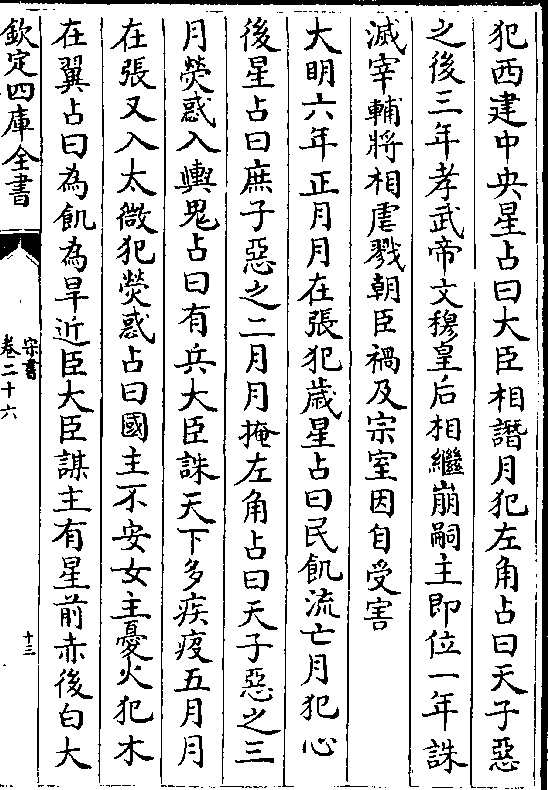 犯西建中央星占曰大臣相譖月犯左角占曰天子惡
之後三年孝武帝文穆皇后相繼崩嗣主即位一年誅
滅宰輔將相虐戮朝臣禍及宗室因自受害
大明六年正月月在張犯歲星占曰民飢流亡月犯心
後星占曰庶子惡之二月月掩左角占曰天子惡之三
月熒惑入輿鬼占曰有兵大臣誅天下多疾疫五月月
在張又入太微犯熒惑占曰國主不安女主憂火犯木
在翼占曰為飢為旱近臣大臣謀主有星前赤後白大
欽定四庫全書
宋書
卷二十六
十三